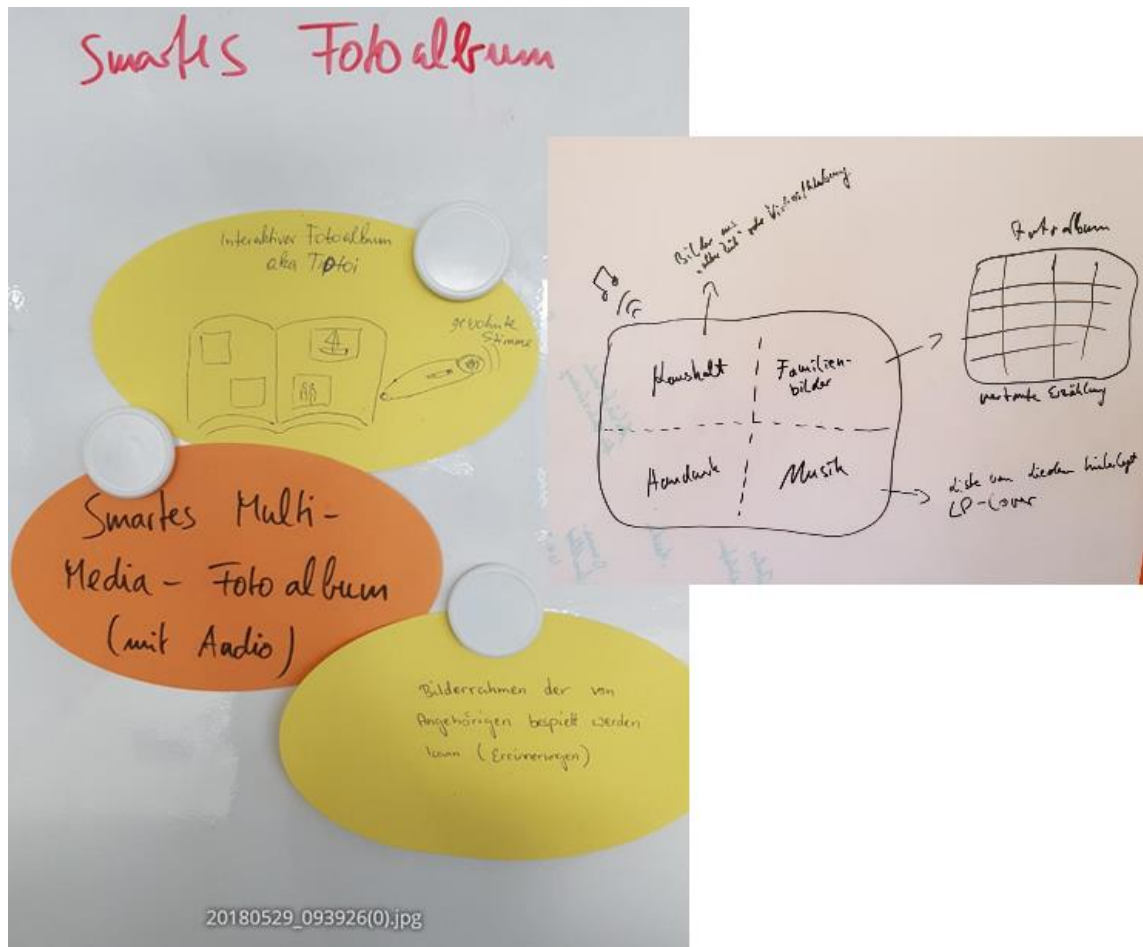 Smartes Fotoalbum
Interaktiver Fotoalbum
aka Tiptoi
gewohnte
Stimme
Smartes Multi-
Media- Fotoalbum
(mit Audio)
Bilderrahmen der von
Angehörigen bespielt werden
kann (Errinerungen)
20180529_093926(0).jpg
Bilder aus
Haushalt
Familien-
bilder
Musik
Fotoalbum
vertonte Erzählung
Liste von Liedern hinterlegt
LP-Cover